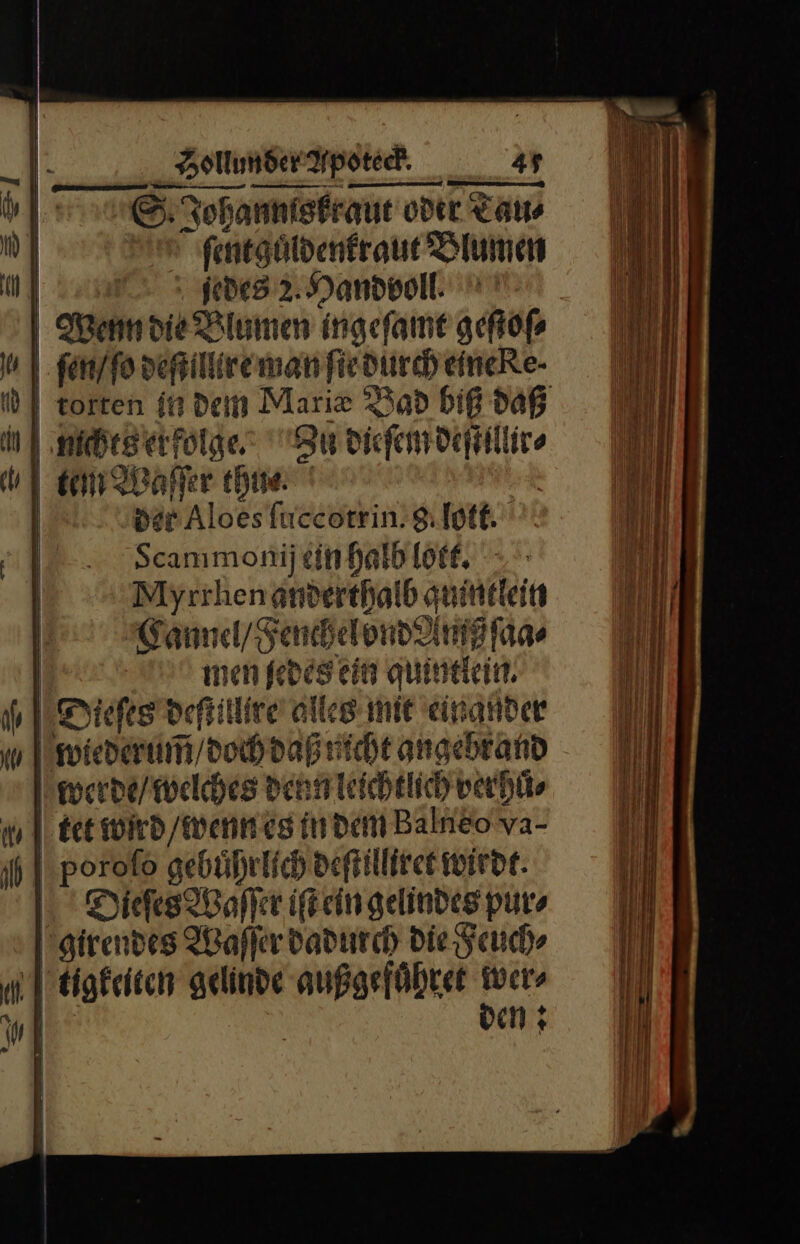 Hollunder Apoteck. 45
S. Johanniskraut oder Tau⸗
ſentguͤldenkraut Blumen
jedes 2. Handvoll.
Wenn die Blumen ingeſamt geſtoſ⸗
ſen/ ſo deſtillire man ſie durch eine Re-
torten in dem Mariæ Bad biß daß
nichts erfolge. Zu dieſem deſtillir⸗
tem Waſſer thue.
der Aloes ſuccotrin. 8. lott.
Scammonij ein halb lott.
Myrrhen anderthalb quintlein
Cannel/ Fenchel vnd Aniß ſaa⸗
men jedes ein quintlein.
Dieſes deſtillire alles mit einander
wiederum̃/ doch daß nicht angebrand
werde/ welches denn leichtlich verhuͤ⸗
tet wird/ wenn es in dem Balneo va-
poroſo gebuͤhrlich deſtilliret wirdt.
Dieſes Waſſer iſt ein gelindes pur⸗
girendes Waſſer dadurch die Feuch⸗
tigkeiten gelinde außgefuͤhret wer⸗
den :